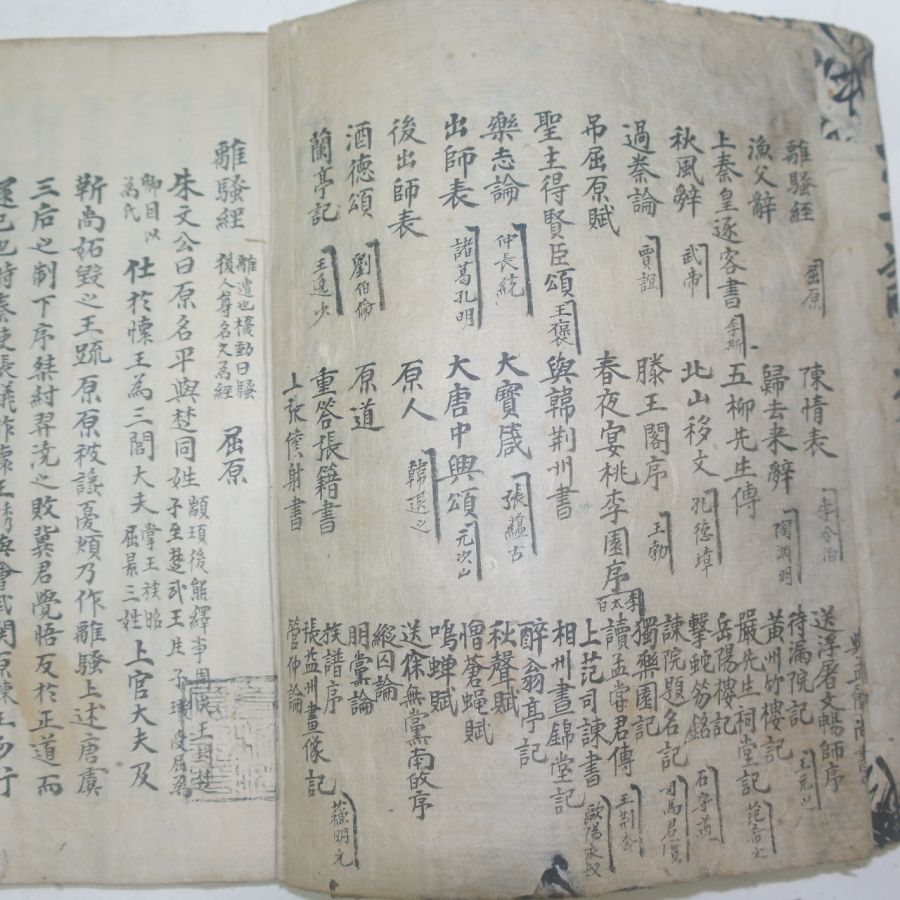 離騷經 屈原
漁父辭
上秦皇逐客書 李斯
秋風辭 武帝
過秦論 賈誼
吊屈原賦
聖主得賢臣頌 王褒
樂志論 仲長統
出師表 諸葛孔明
後出師表
酒德頌 劉伯倫
蘭亭記 王逸少
陳情表 李令伯
歸去来辭 陶淵明
五柳先生傳
北山移文 孔德璋
滕王閣序 王勃
春夜宴桃李園序 李太白
與韓荆州書
大寶箴 張蘊古
大唐中興頌 元次山
原人 韓退之
原道
重答張籍書
上張僕射書
送浮屠文暢師序
待漏院記 王元之
黃州竹樓記
嚴先生祠堂記 范希文
岳陽樓記
擊蛇笏銘 石守道
諫院題名記 司馬君實
獨樂園記
讀孟嘗君傳 王荆公
上范司諫書 歐陽永叔
相州晝錦堂記
醉翁亭記
秋聲賦
憎蒼蝇賦
鳴蝉賦
送徐無黨南歸序
縱囚論
朋黨論
族譜序
張益州畫像記 蘇明允
管仲論
離騷經 離遭也擾動曰騷 後人尊名之為經 屈原
朱文公曰原名平與楚同姓
仕於懷王為三閭大夫 掌王族昭屈景三姓 上官大夫及
靳尚妬毁之王疏原原被讒憂煩乃作離騷上述唐虞
三后之制下序桀紂羿澆之敗冀君覺悟反於正道而
還己也時秦使張儀詐懷王誘與會武関原諫王勿行